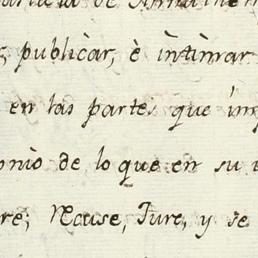 publicàr, è intimar
en las partes que
onio de lo que en su
re; Vause, Jure, y se